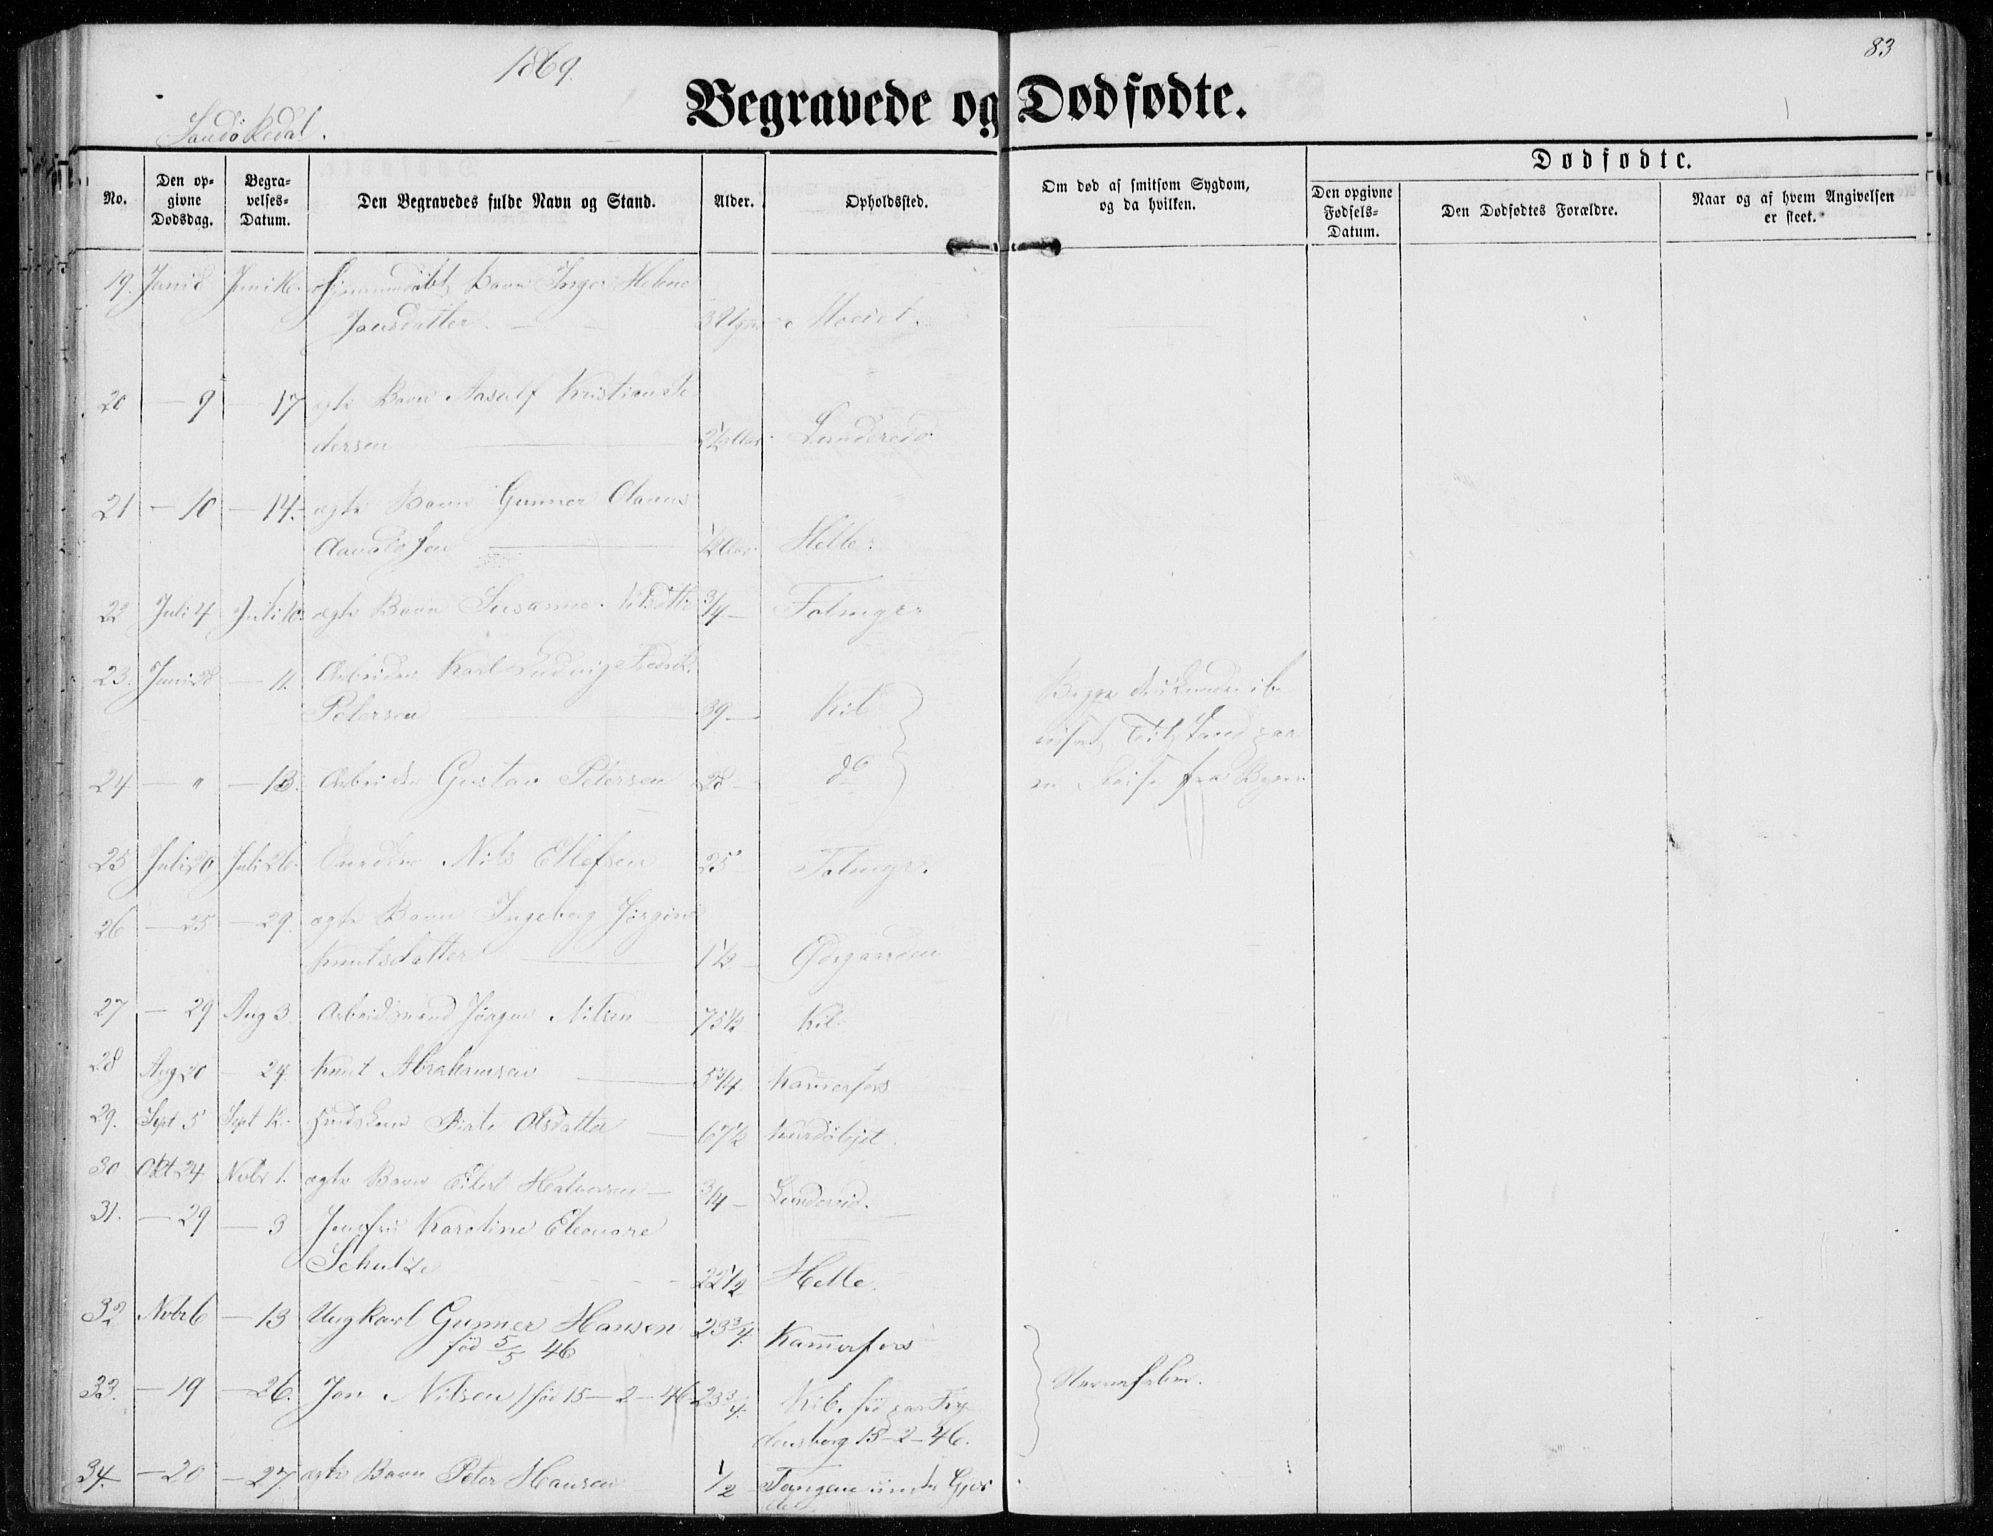 1869.
83
Sandøkedal.
Begravede og Dødfødte.
No.
Den op-
givne
Dødsdag.
Begra-
velses-
Datum.
Den Begravedes fulde Navn og Stand.
Alder.
Opholdssted.
Om død af smitsom Sygdom,
og da hvilken.
Dødfødte.
Den opgivne
Fødsels-
Datum.
Den Dødfødtes Forældre.
Naar og af hvem Angivelsen
er skeet.
19. Juni 8 Juni 16. Barn Inger Helene
Jonsdatter. 3 Ugr
20 — 9 — 17 ægte Barn Kristian Pe
dersen 2½ Aar. Lundereid
21 — 10 — 14. ægte Barn Gunner Olavus
½ Aar Helle.
22 Juli 4 Juli 10. ægte Barn Susanne Nilsdtr ¾ — Folmyer
23. Juni 28 — 11. Arbeider Karl Ludvig Fredrik
Petersen 39 — Kil
Begge
Tilstand paa
24 — " — 13. Arbeider Gustav Petersen 28 — do
en Reise fra Bergen
25 Juli 20 Juli 26. Nils Ellefsen 25 — Folmyr.
26 — 25 — 29. ægte Barn Ingeborg Jørgine
Knutsdatter 1½ — Ødegaarden
27 — 29 Aug 3. Arbeidsmand Jørgen Nilsen 75½ Kil.
28 Aug 20 — 24. Knut Abrahamsen 5¾ Kammerfors
29. Sept 5 Sept 12. Birte Olsdatter 67½
30 Okt 24 Novbr 1. ægte Barn Eilert Halvorsen — ¾ — Lundereid.
31. — 29 — 3 Jomfru Karoline Eleonore
Schulze 22½ Helle.
32 Novbr 6 — 13 Ungkarl Gunner Hansen 23¾. Kammerfors
fød 5/5 46
33. — 19 — 26. Jon Nilsen fød 15 — 2 — 46 23¾. Kil. fød paa Fry-
Nervefeber.
densborg 15 — 2 — 46.
34. — 20 — 27. ægte Barn Peter Hansen ½ Tangen under Gjer